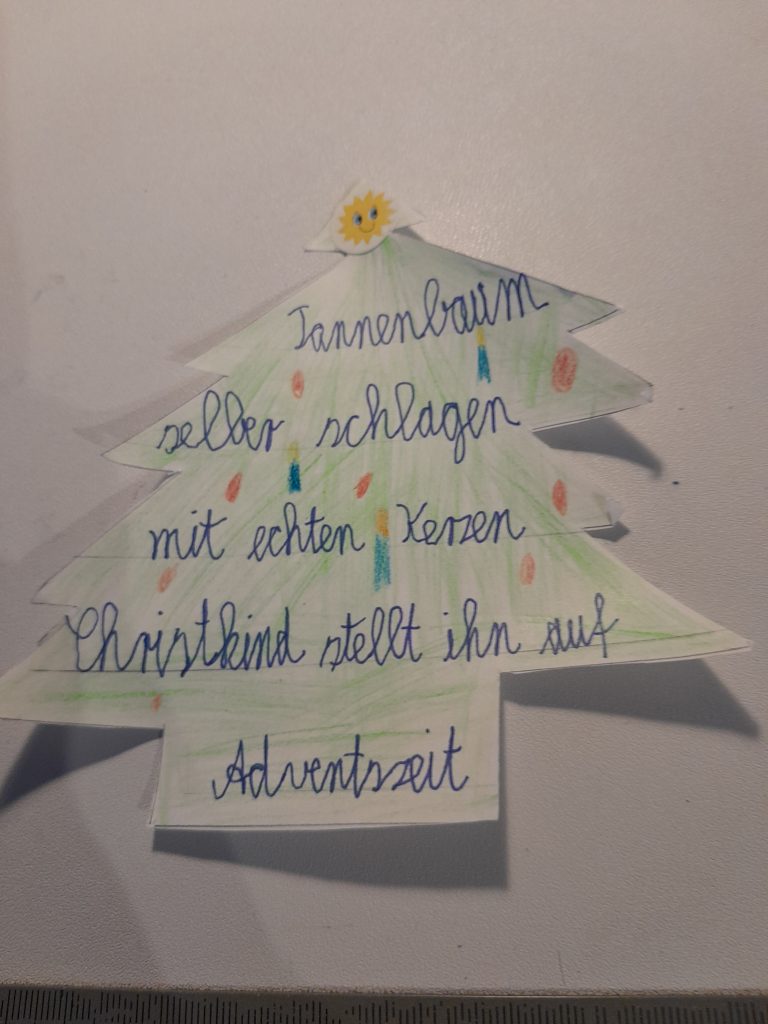 Tannenbaum
selber schlagen
mit echten Kerzen
Christkind stellt ihn auf
Adventszeit